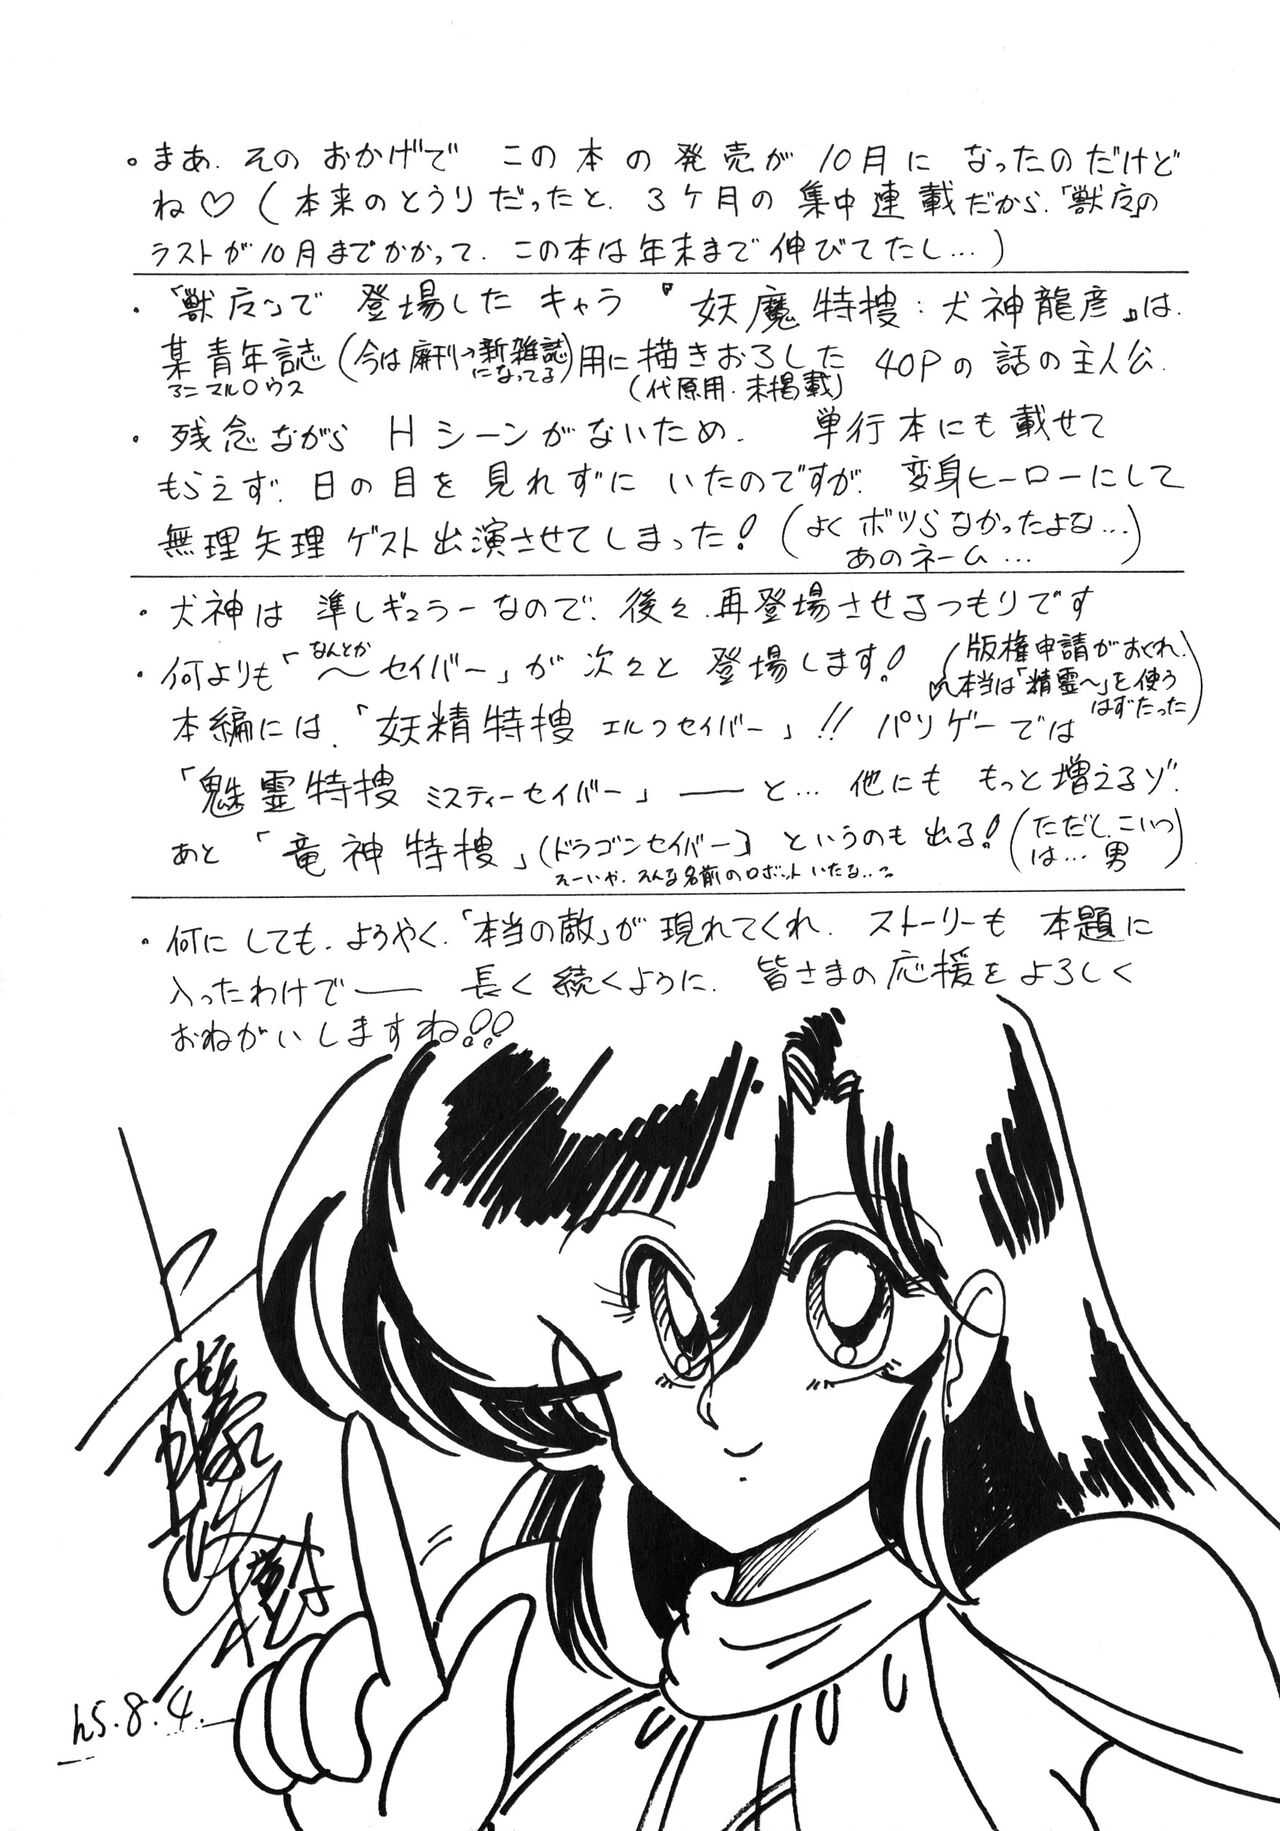 。まあ、そのおかげで この本の発売が10月に なったのだけど
ね♡(本来のとうりだったと、3ケ月の集中連載だから、「獣反」の
ラストが10月までかかって、この本は年末まで伸びてたし…)
・「獣反」で 登場した キャラ『妖魔特捜:犬神龍彦』は、
某青年誌(今は廃刊→新雑誌になってる)用に描きおろした 40Pの話の主人公。
アニマルハウス (代原用・未掲載)
・残念ながら Hシーンがないため、 単行本にも載せて
もらえず、日の目を見れずに いたのですが、変身ヒーローにして
無理矢理ゲスト出演させてしまった!(よくボツらなかったよな…
あのネーム…)
・犬神は 準レギュラーなので、後々、再登場させるつもりです
・何よりも「〜セイバー」が 次々と 登場します!(版権申請がおくれ、
なんとか
本当は「精霊〜」を使う
はずだった)
本編には、「妖精特捜 エルフセイバー」!! パソゲーでは
「魅霊特捜 ミスティーセイバー」——と… 他にも もっと増えるゾ。
あと「竜神特捜」(ドラゴンセイバー) というのも出る!(ただし、こいつ
は… 男)
そーいや、そんな名前のロボットいたな…
・何にしても、ようやく、「本当の敵」が現れてくれ、ストーリーも 本題に
入ったわけで—— 長く続くように、皆さまの応援をよろしく
おねがいしますね!!
h5.8.4.